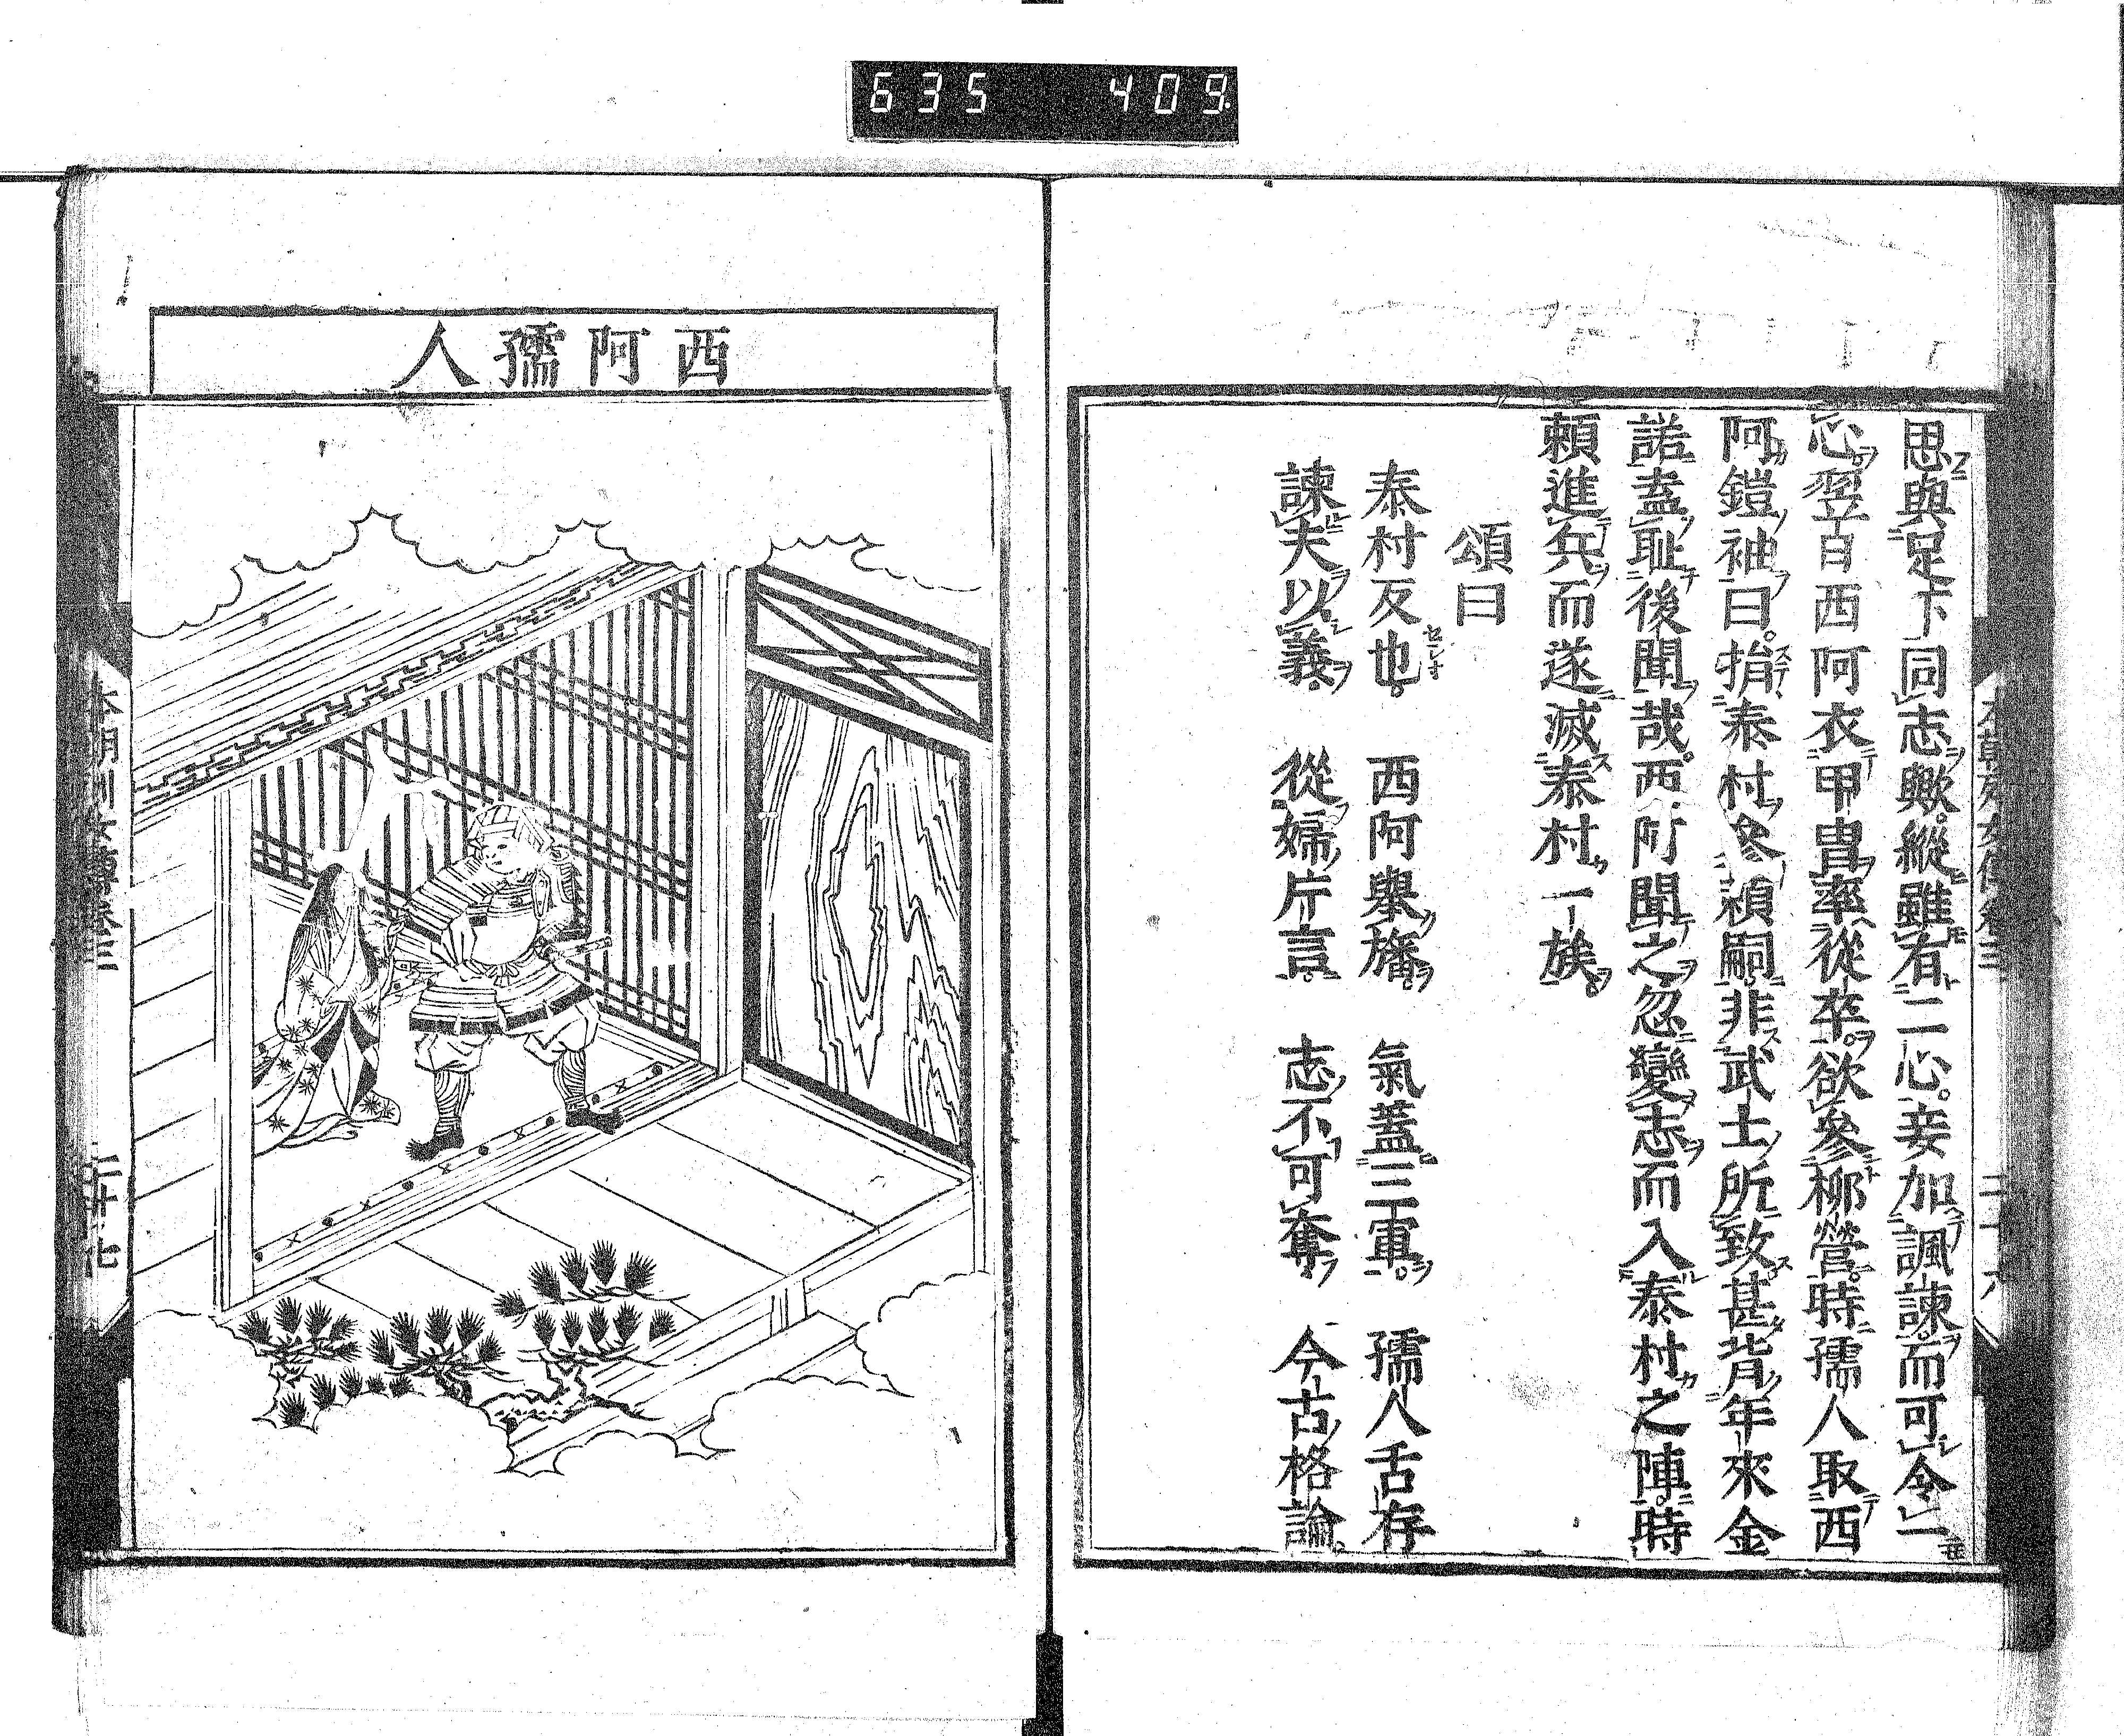 635 409
思與足下同志歟。縱雖有二心。妾加諷諫。而可令一
心。翌日西阿衣甲冑率從卒。欲參柳營。時孺人取西
阿鎧袖曰。捐泰村參賴嗣。非武士所致。甚背年來金
諾。盍耻後聞哉。西阿聞之忽變志而入泰村之陣。時
賴進兵而遂滅泰村一族。
頌曰
泰村反也。 西阿舉旛。 氣蓋三軍。 孺人舌存
諫夫以義。 從婦片言。 志不可奪。 今古格論。
本朝列女傳卷三 二十六
西阿孺人
本朝列女傳卷三 二十七